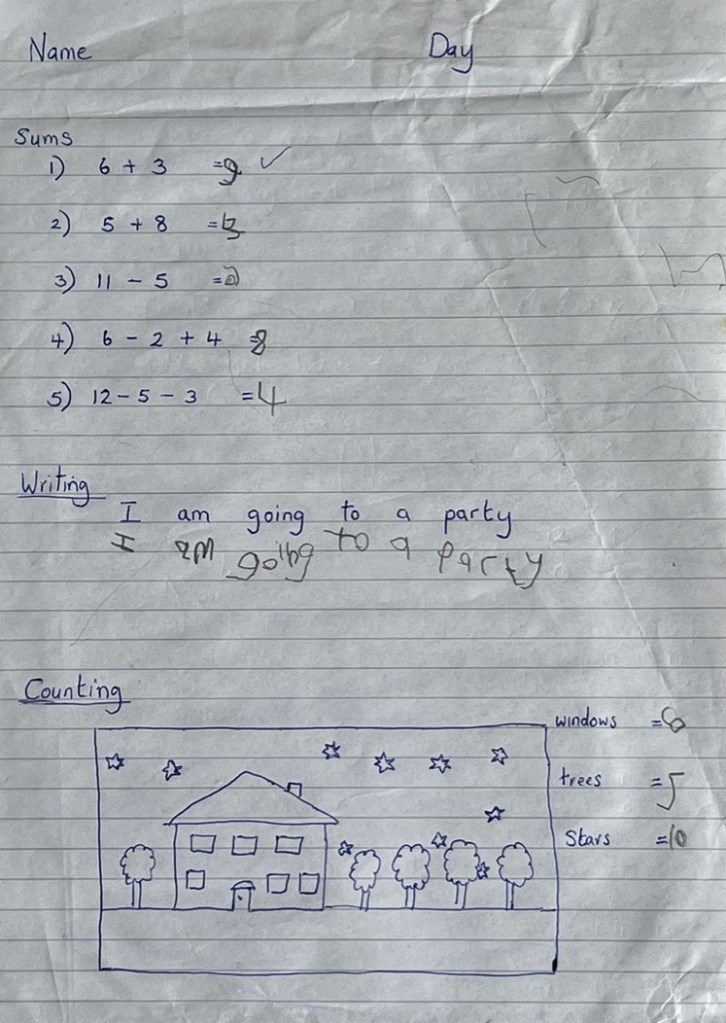 Name Day
Sums
1) 6 + 3 =9 ✓
2) 5 + 8 =13
3) 11 - 5 =
4) 6 - 2 + 4 =8
5) 12 - 5 - 3 =4
Writing
I am going to a party
I am going to a party
Counting
windows =8
trees =5
Stars =10